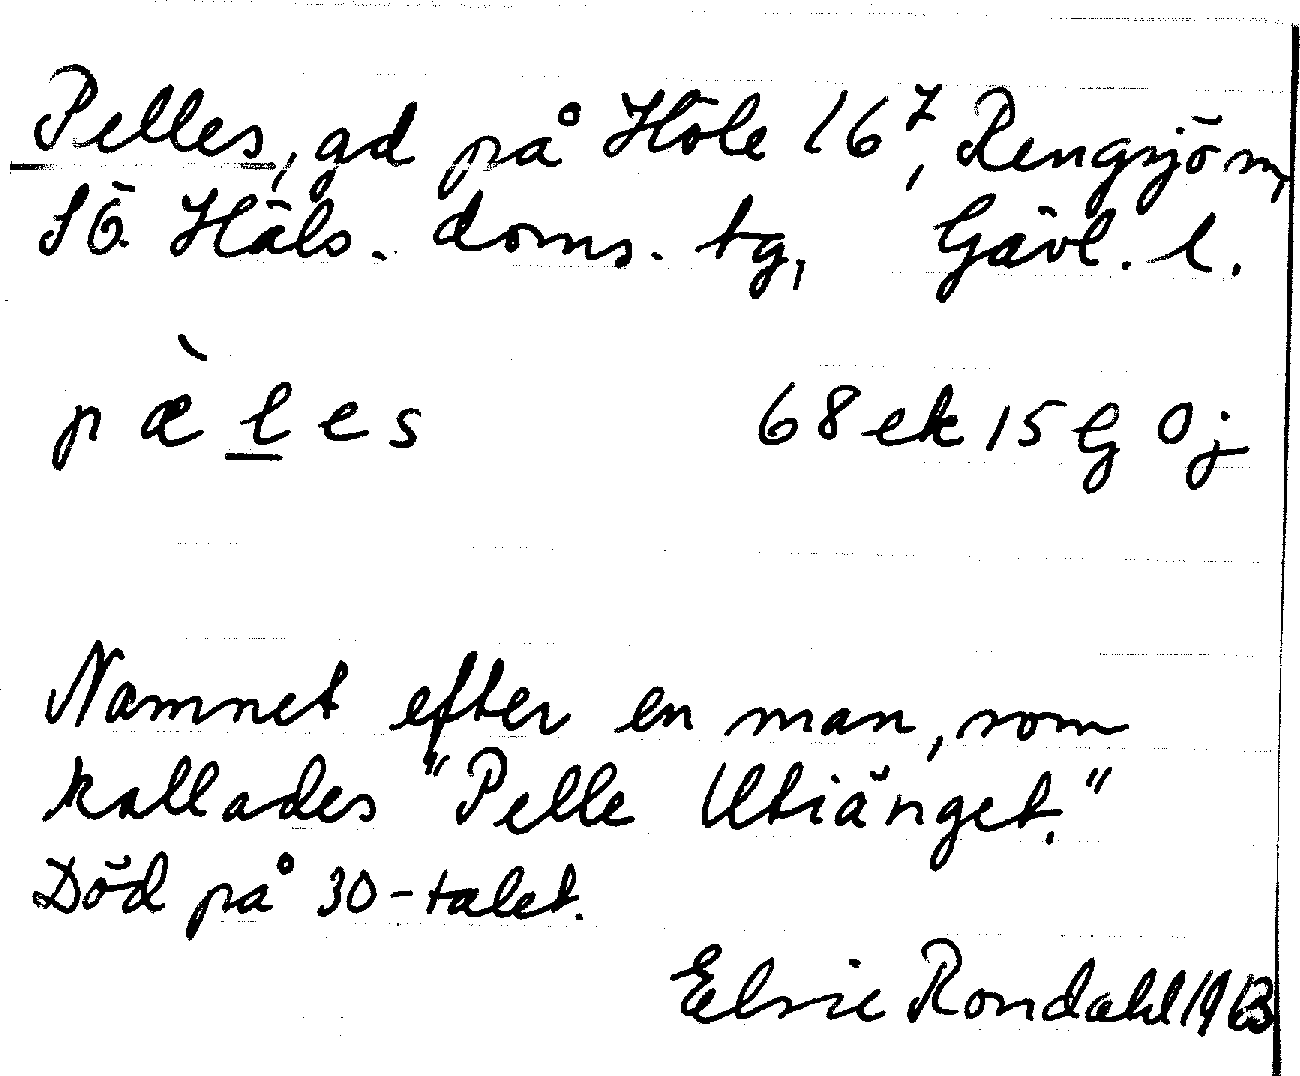 Pelles, gd på Höle 16⁷, Rengsjö sn,
SÖ Häls. doms. tg, Gävl. l.
pæ̀l̲es 68ek15G Oj
Namnet efter en man, som
kallades "Pelle Utiänget."
Död på 30-talet.
Elsie Rondahl 1963